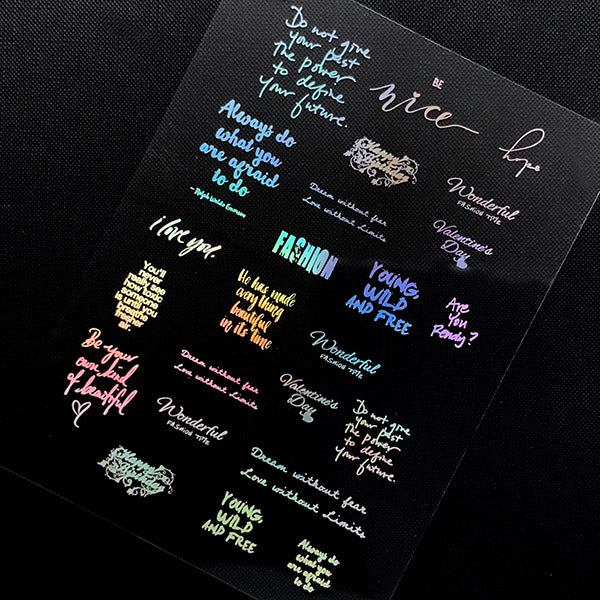 Do not give
your past
the power
to define
your future.
BE
nice
hope
Always do
what you
are afraid
to do
- Ralph Waldo Emerson
Happy
Birthday
Dream without fear
Love without limits
Wonderful
FASHION TYPE
Valentine's
Day
i love you.
FASHION
YOUNG,
WILD
AND FREE
Are
you
Ready?
You'll
never
really see
how toxic
someone
is until you
breathe
fresher
air.
He has made
everything
beautiful
in its time
Wonderful
FASHION TYPE
Be your
own kind
of beautiful
Dream without fear
Love without limits
Valentine's
Day
Wonderful
FASHION TYPE
Do not give
your past
the power
to define
your future.
Happy
Birthday
Dream without fear
Love without limits
YOUNG,
WILD
AND FREE
Always do
what you
are afraid
to do